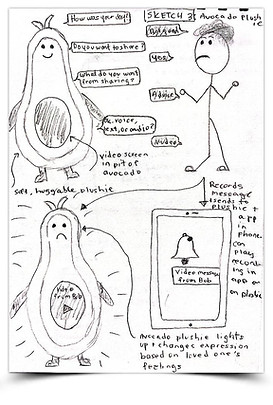 How was your day?
SKETCH 3:
Avocado plushie
Do you want to share?
Yes.
What do you want
from sharing?
Advice
Ok. Voice,
text, or audio?
Video
video screen
in pit of
avocado
soft, huggable plushie
Records
message
sends to
plushie +
app in
phone.
can
play
recording
in app
or on
plushie
Video
from Bob
Video message
from Bob
Avocado plushie lights
up + changes expression
based on loved one's
feelings